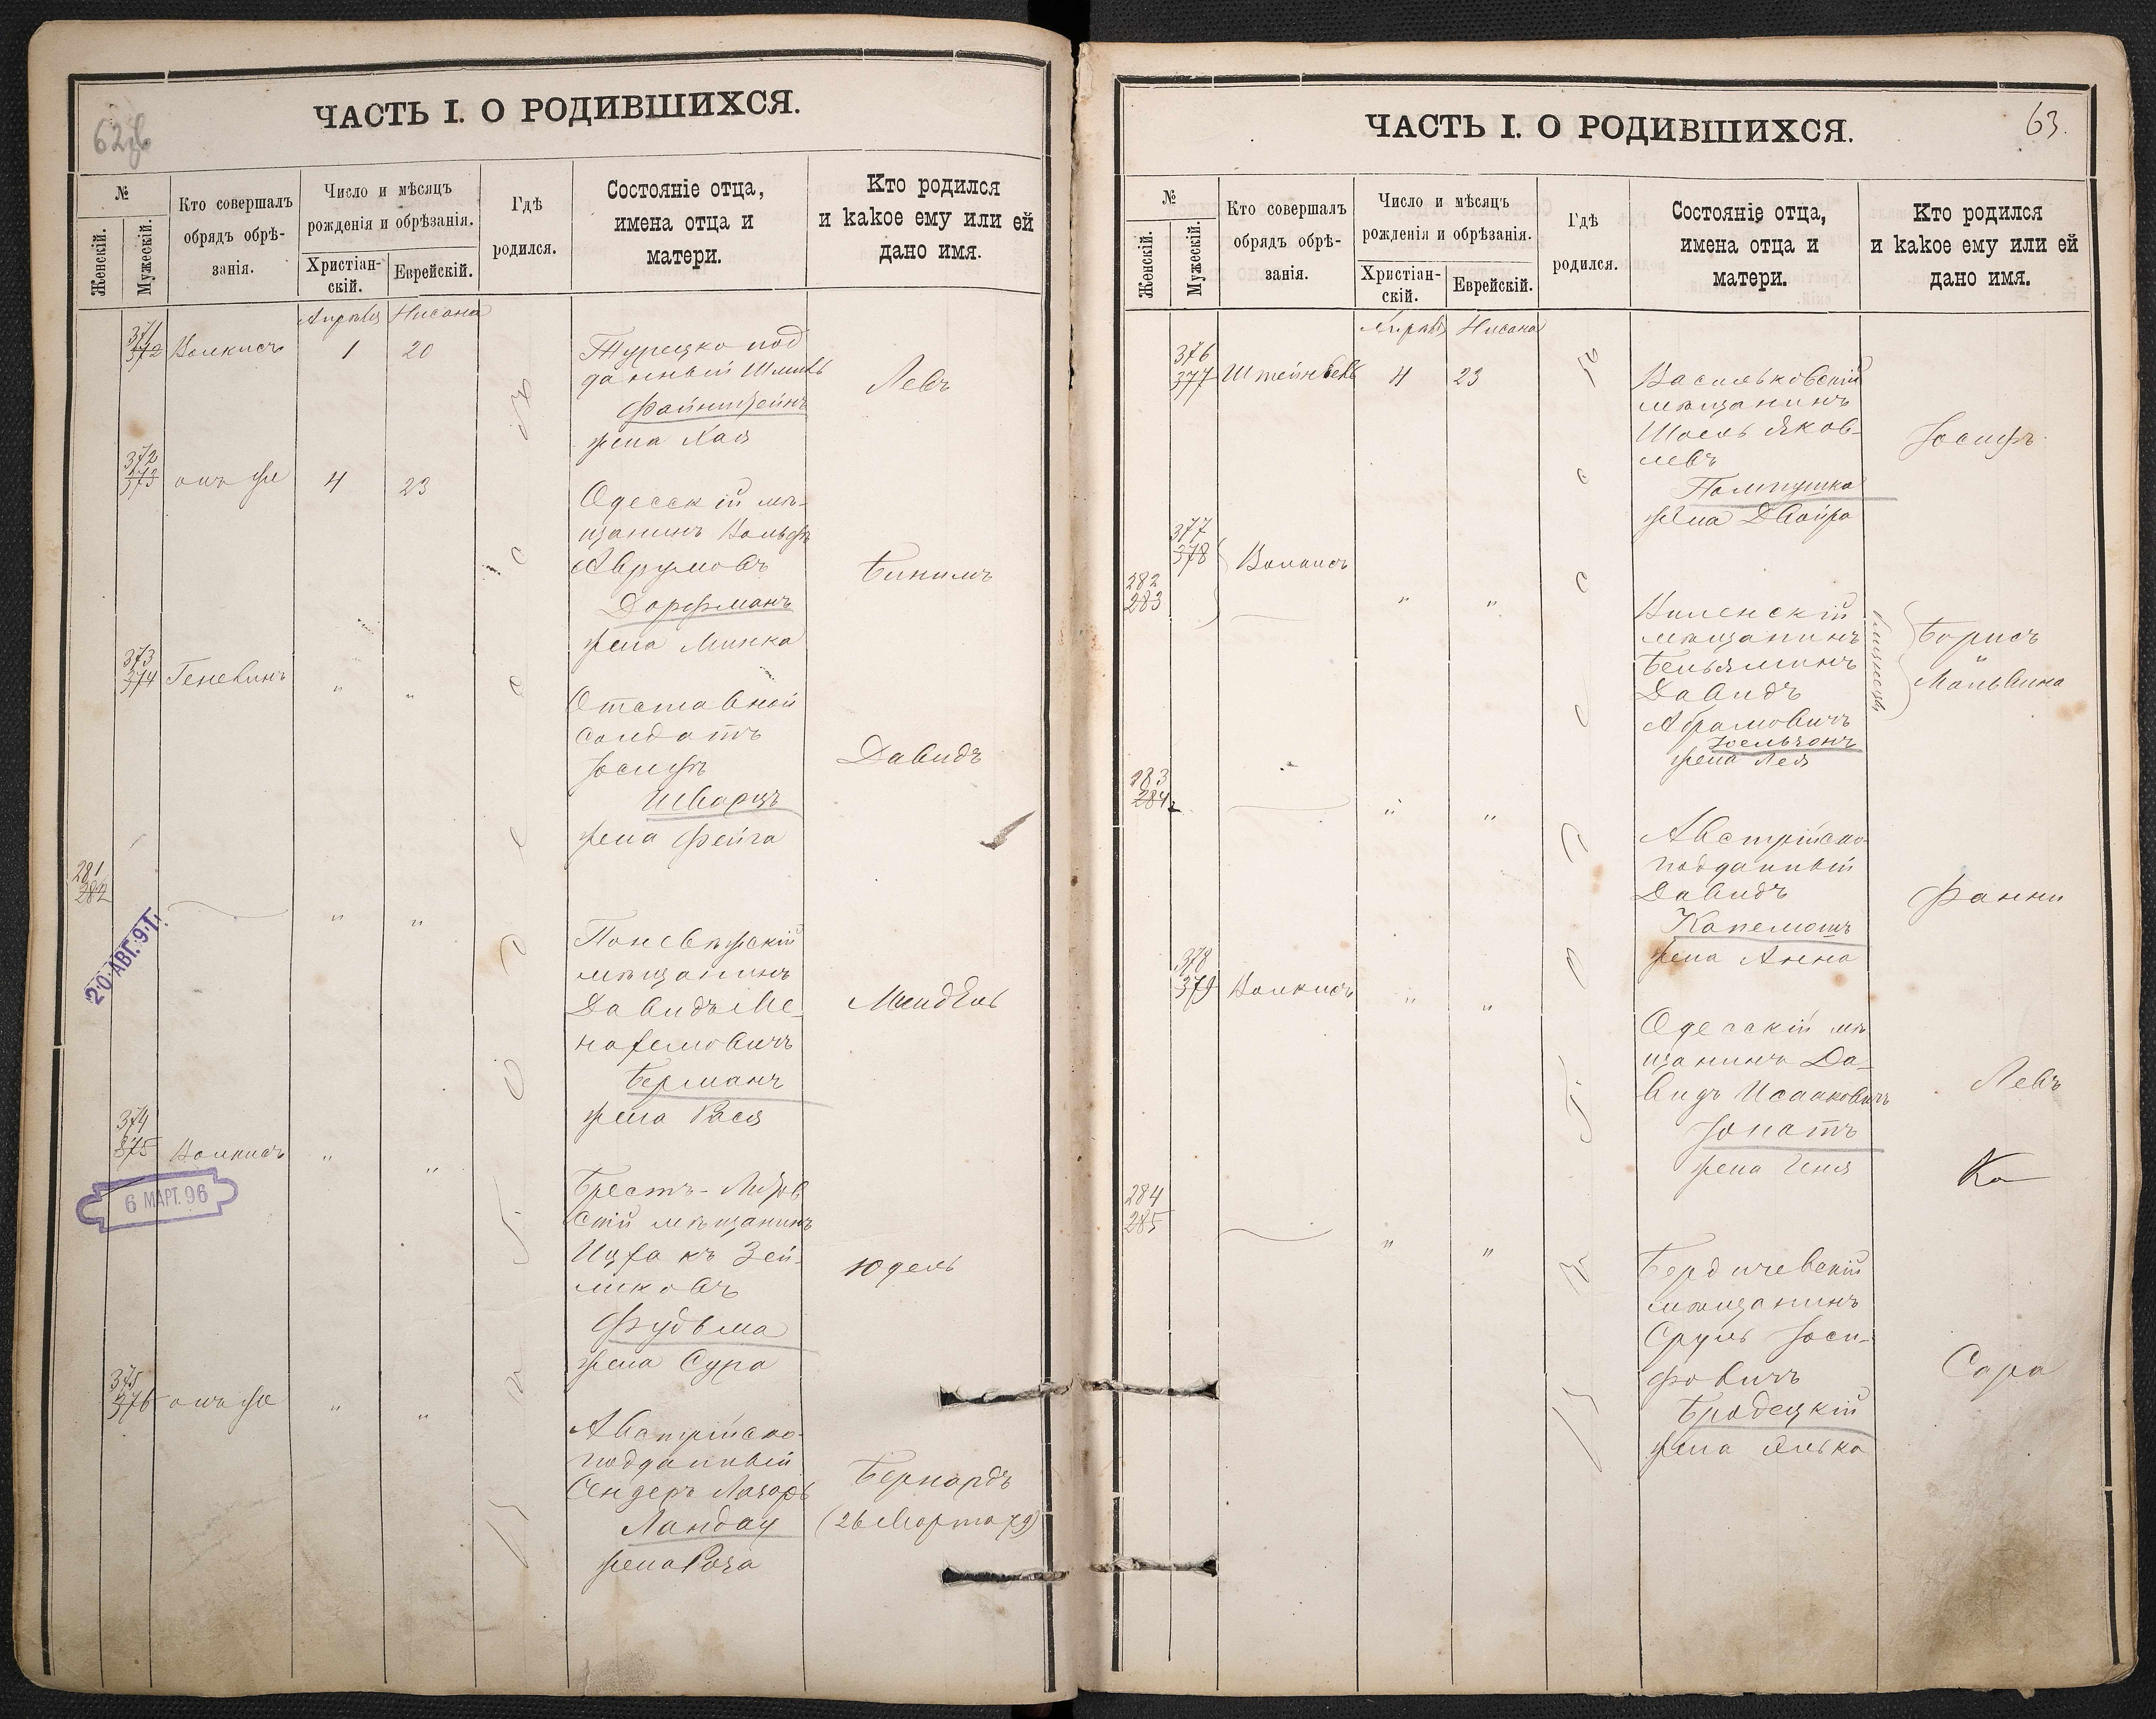 62об
ЧАСТЬ I. О РОДИВШИХСЯ.
№
Женскій.
Мужескій.
Кто совершалъ
обрядъ обрѣ-
занія.
Число и мѣсяцъ
рожденія и обрѣзанія.
Христіан-
скій.
Еврейскій.
Гдѣ
родился.
Состояніе отца,
имена отца и
матери.
Кто родился
и какое ему или ей
дано имя.
Апрѣля Нисана
въ Одессѣ
371
372 Волкисъ 1 20
Турецко под
данный Шмиль
Файнштейнъ
жена Хая
Левъ
372
373 онъ же 4 23
Одесскій мѣ-
щанинъ Вольфъ
Аврумовъ
Дорфманъ
жена Минка
Биниимъ
373
374 Геневинъ " "
Отставной
солдатъ
Іосифъ
Шварцъ
жена Фейга
Давидъ
281
282 " "
20. АВГ. 91.
Поневѣжскій
мѣщанинъ
Давидъ Ме-
нахемовичъ
Берманъ
жена Рася
Мендель
374
375 Волкисъ " "
6 МАРТ. 96
Брестъ-Литов
скій мѣщанинъ
Ицхакъ Зей-
ликовъ
Фудьма
жена Сура
Юдель
375
376 онъ же " "
Австрійско-
подданный
Сендеръ Лазарь
Ландау
жена Роза
Бернардъ
(26 Марта 79)
63.
ЧАСТЬ I. О РОДИВШИХСЯ.
№
Женскій.
Мужескій.
Кто совершалъ
обрядъ обрѣ-
занія.
Число и мѣсяцъ
рожденія и обрѣзанія.
Христіан-
скій.
Еврейскій.
Гдѣ
родился.
Состояніе отца,
имена отца и
матери.
Кто родился
и какое ему или ей
дано имя.
Апрѣля Нисана
376
377 Штейнбель 4 23
Васильковскій
мѣщанинъ
Шоель Яков-
левъ
Пампушка
жена Двойра
Іосифъ
377
378 Волкисъ
282
283 " "
Виленскій
мѣщанинъ
Беньяминъ
Давидъ
Абрамовичъ
жена Лея
близнецы
Борисъ
"
Мальвина
283
284 " "
Австрійско-
подданный
Давидъ
Капелюшъ
жена Анна
Фанни
378
379 Волкисъ " "
Одесскій мѣ
щанинъ Да-
видъ Исааковичъ
Іонатъ
жена Геня
Левъ
284
285 " "
Бердичевскій
мѣщанинъ
Сруль Іоси-
фовичъ
Бродецкій
жена Элька
Сара